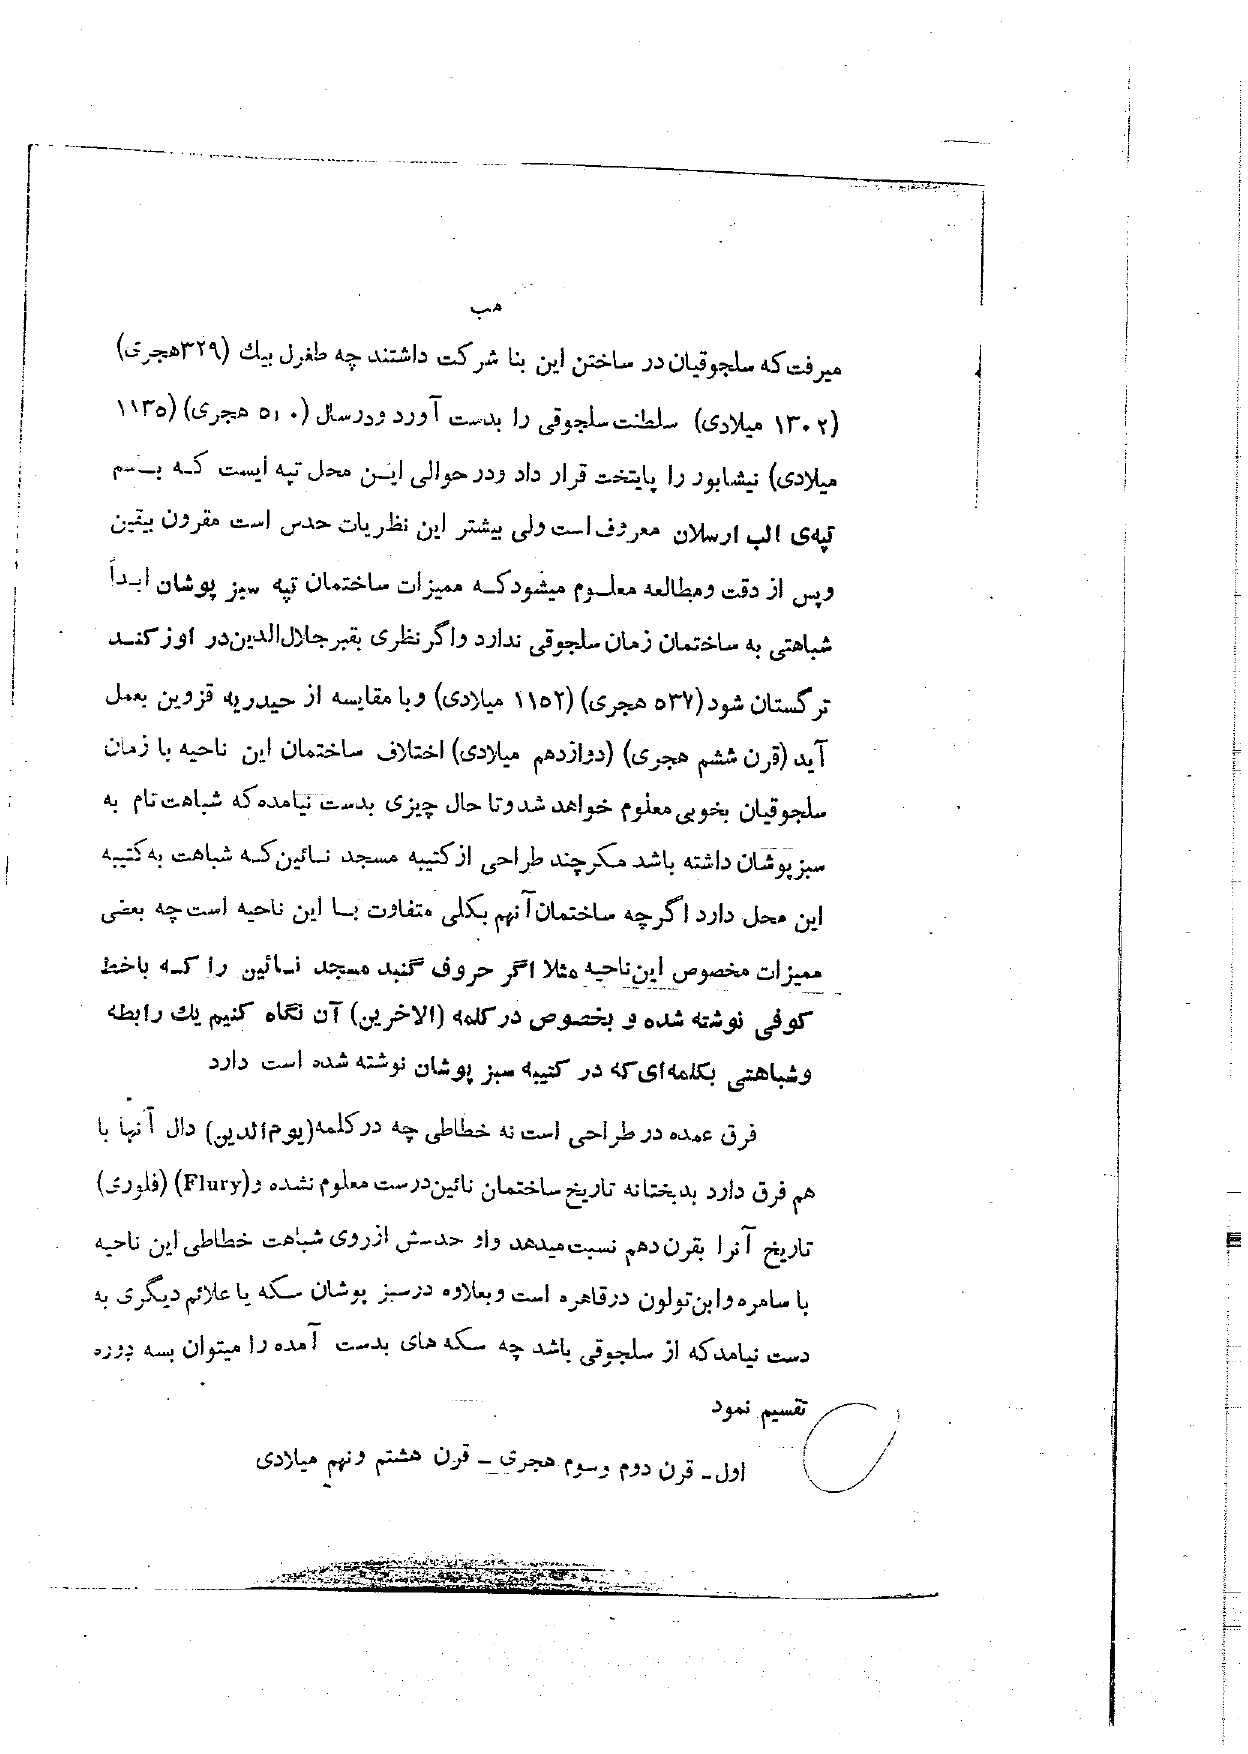 هب
میرفت که سلجوقیان در ساختن این بنا شرکت داشتند چه طغرل بیك (۳۲۹هجری)
(۱۳۰۲ میلادی) سلطنت سلجوقی را بدست آورد ودرسال (۰ر۵ هجری) (۱۱۳۵
میلادی) نیشابور را پایتخت قرار داد ودر حوالی ایـن محل تپه ایست کـه بـسم
تپه‌ی الب ارسلان معروف است ولی بیشتر این نظریات حدس است مقرون بیقین
وپس از دقت ومطالعه معلـوم میشودکـه ممیزات ساختمان تپه سبز پوشان ابـداً
شباهتی به ساختمان زمان سلجوقی ندارد واگر نظری بقبر جلال‌الدین‌در اوز کنـد
ترکستان شود (۵۳۷ هجری) (۱۱۵۲ میلادی) وبا مقایسه از حیدریه قزوین بعمل
آید (قرن ششم هجری) (دوازدهم میلادی) اختلاف ساختمان این ناحیه با زمان
سلجوقیان بخوبی معلوم خواهد شد وتا حال چیزی بدست نیامده‌که شباهت تام به
سبزپوشان داشته باشد مکرچند طراحی از کتیبه مسجد نـائین‌کـه شباهت به‌کتیبه
این محل دارد اگرچه ساختمان آنهم بکلی متفاوت بـا این ناحیه است چه بعضی
ممیزات مخصوص این‌ناحیه مثلا اگر حروف گنبد مسجد نـائین را کـه باخط
کوفی نوشته شده و بخصوص در کلمه (الاخرین) آن نگاه کنیم یك رابطه
وشباهتی بکلمه‌ای‌که در کتیبه سبز پوشان نوشته شده است دارد
فرق عمده در طراحی است نه خطاطی چه در کلمه (یوم‌الدین) دال آنها با
هم فرق دارد بدبختانه تاریخ ساختمان نائین‌درست معلوم نشده و(Flury) (فلوری)
تاریخ آنرا بقرن دهم نسبت میدهد واو حدسش ازروی شباهت خطاطی این ناحیه
با سامره وابن‌تولون درقاهره است وبعلاوه درسبز پوشان سکه یا علائم دیگری به
دست نیامدکه از سلجوقی باشد چه سکه های بدست آمده را میتوان بسه دوره
تقسیم نمود
اول- قرن دوم وسوم هجری - قرن هشتم ونهم میلادی